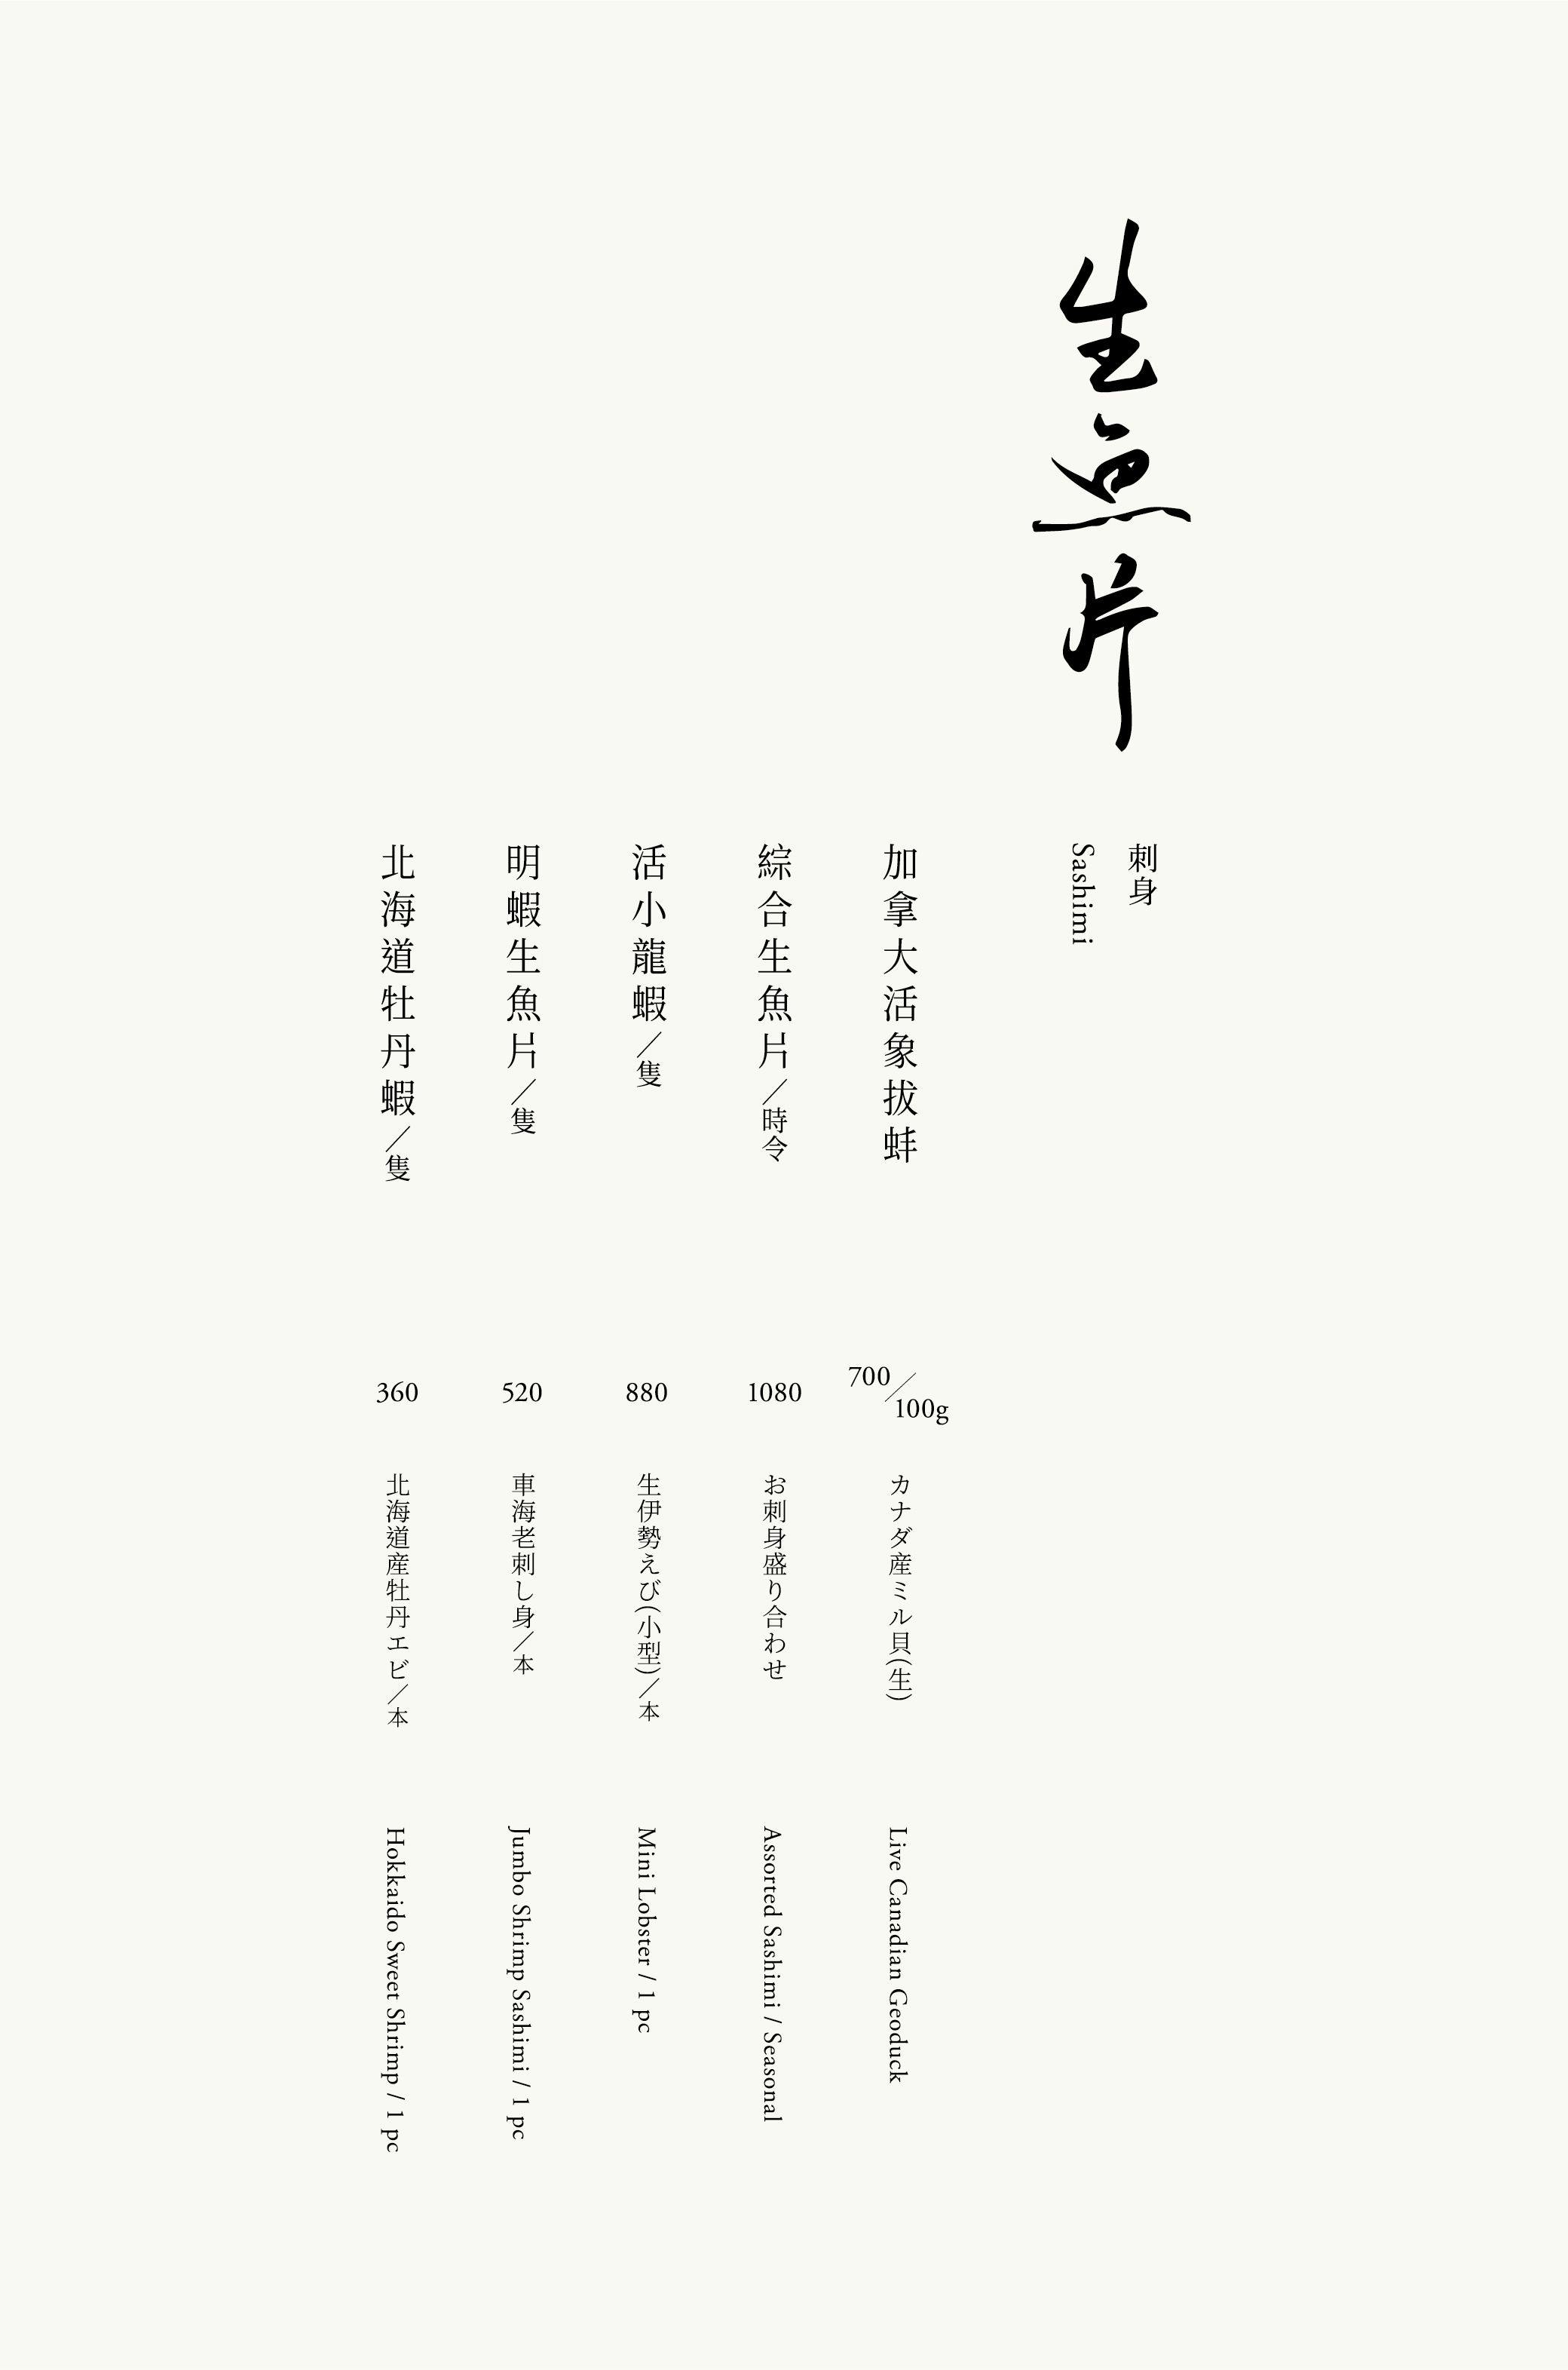 生魚片
刺身
Sashimi
加拿大活象拔蚌
700／100g
カナダ産ミル貝(生)
Live Canadian Geoduck
綜合生魚片／時令
1080
お刺身盛り合わせ
Assorted Sashimi / Seasonal
活小龍蝦／隻
880
生伊勢えび(小型)／本
Mini Lobster / 1 pc
明蝦生魚片／隻
520
車海老刺し身／本
Jumbo Shrimp Sashimi / 1 pc
北海道牡丹蝦／隻
360
北海道産牡丹エビ／本
Hokkaido Sweet Shrimp / 1 pc